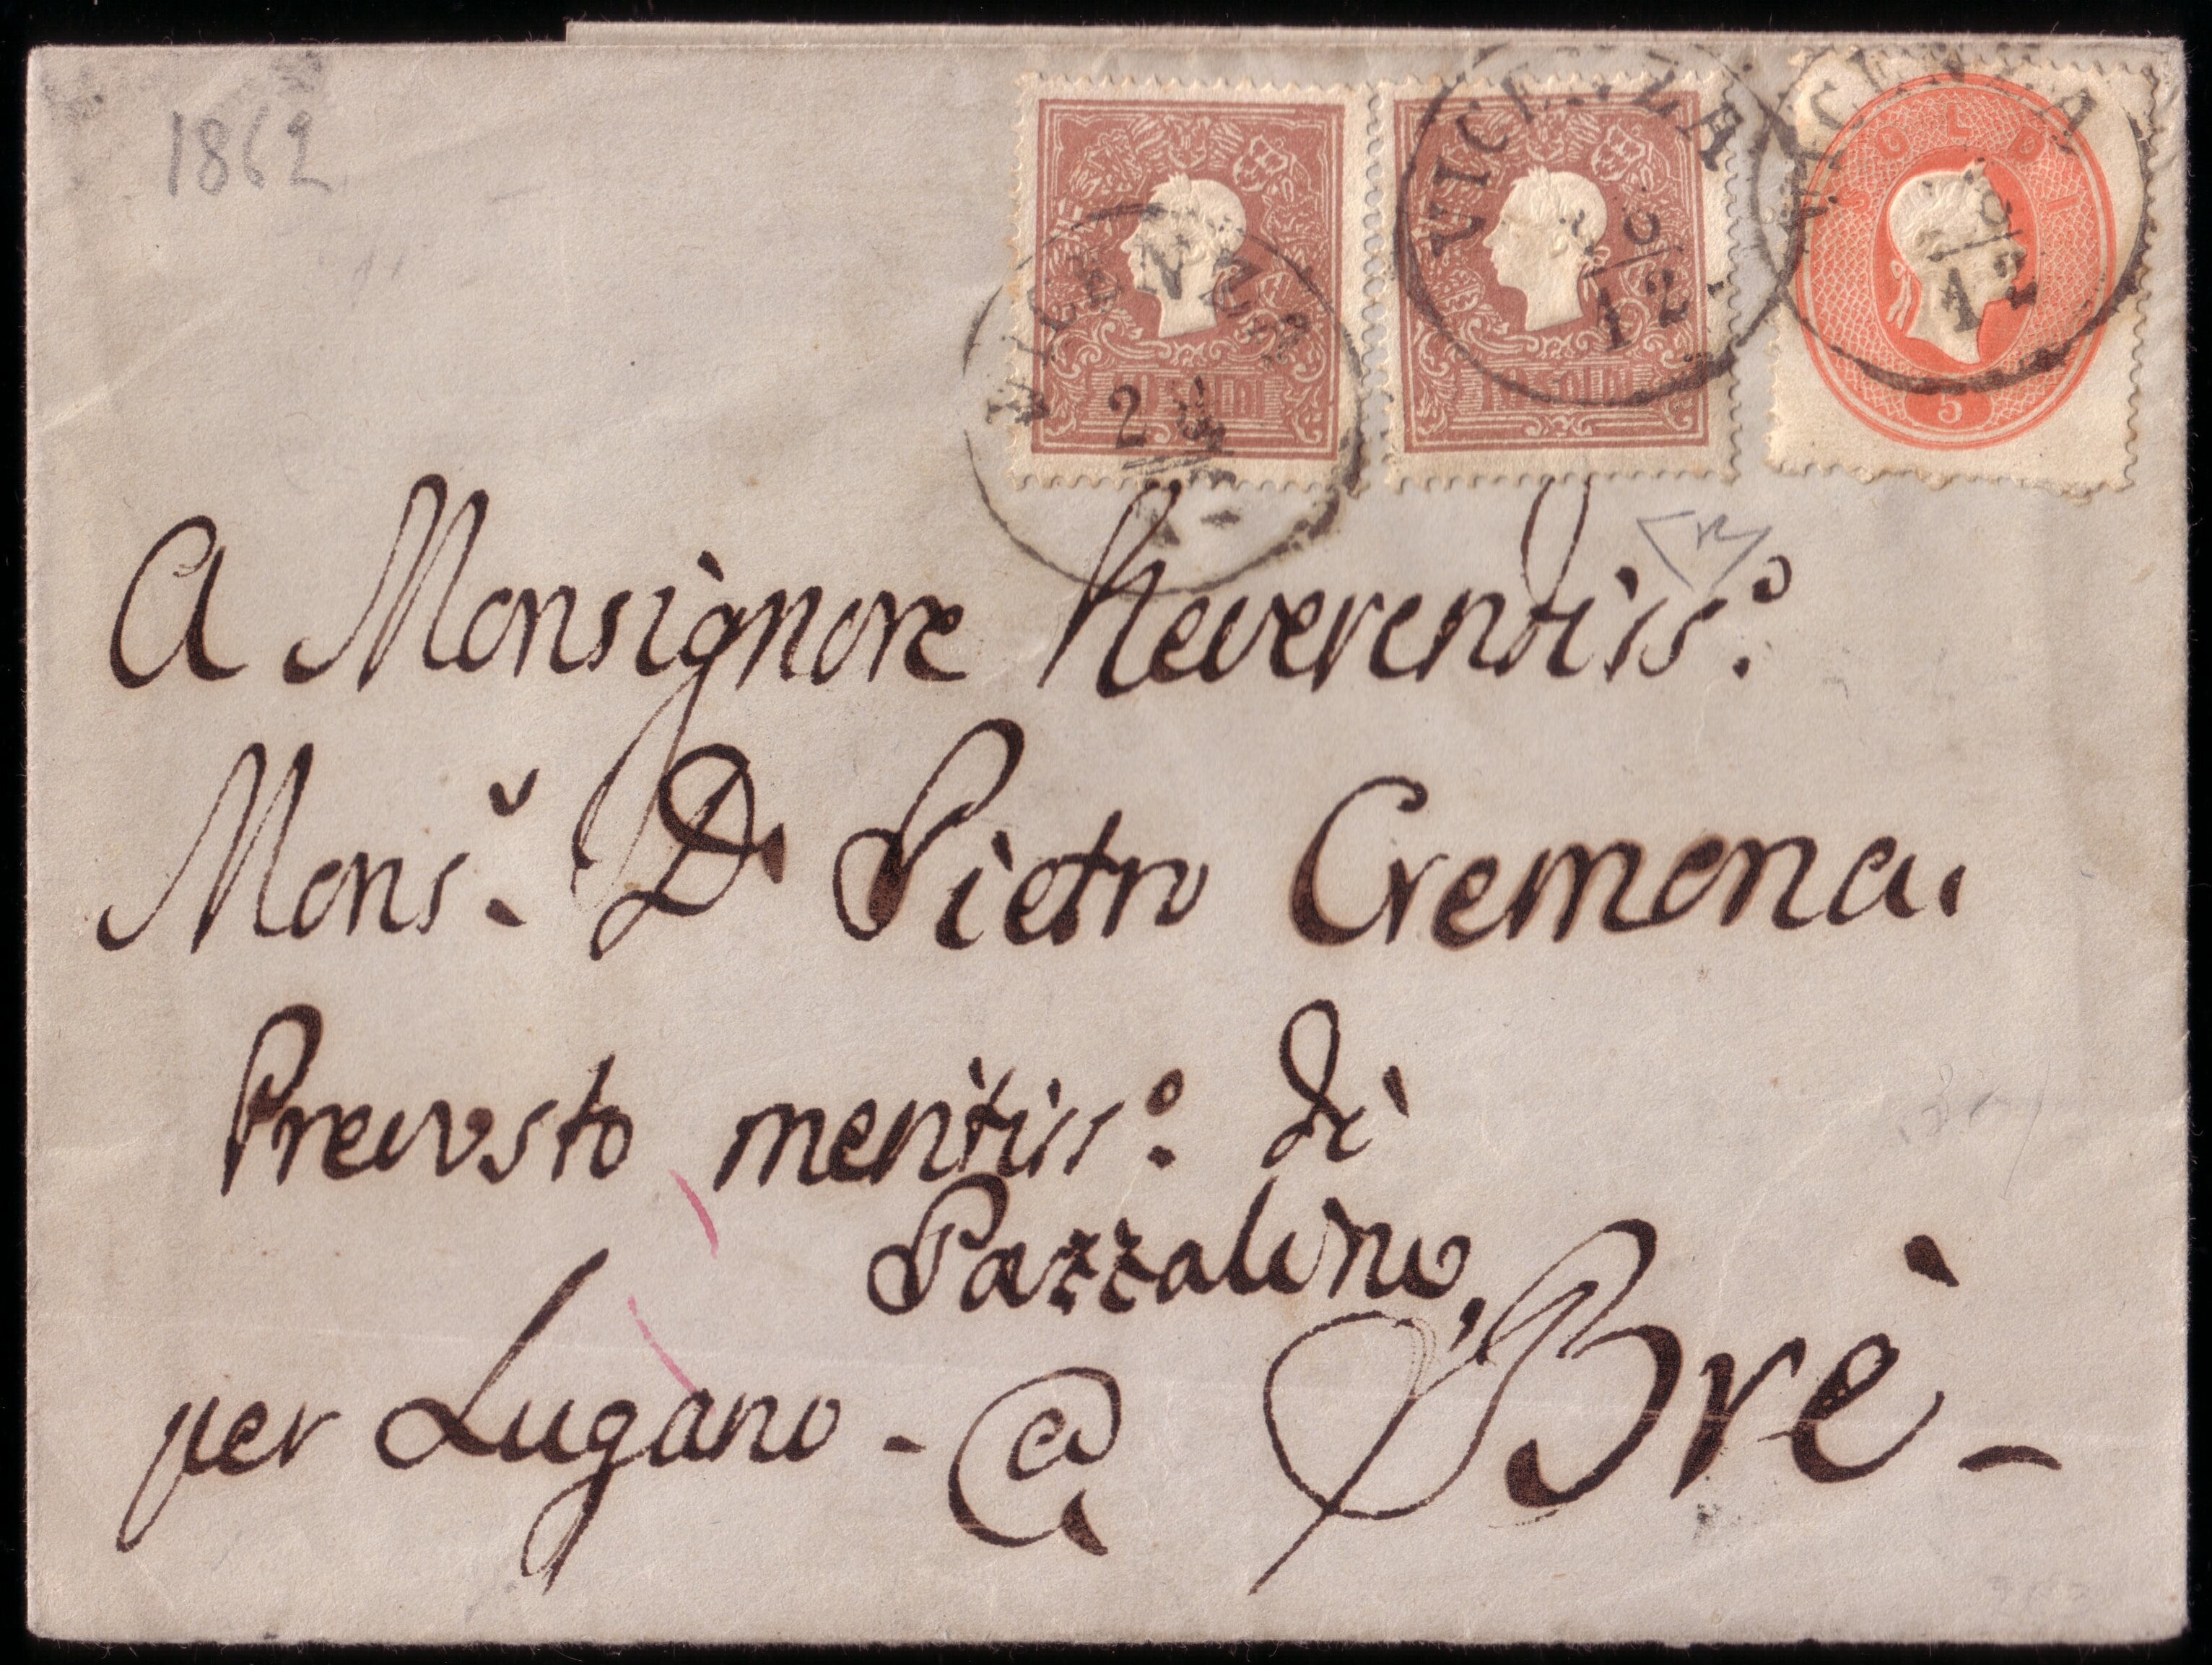 1862
VICENZA
10 SOLDI
VICENZA
12
10 SOLDI
VICENZA
12
SOLDI
5
A Monsignore Reverendiss.º
Mons.r D. Pietro Cremona.
Prevosto meritiss.º di
Pazzalino,
per Lugano - a Brè -